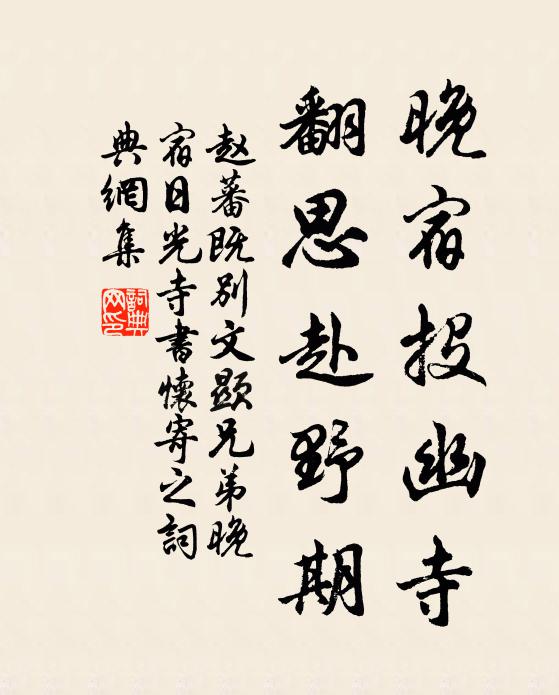 晚宿投幽寺
翻思赴野期
赵蕃既别文顯兄弟晚
宿日光寺書懷寄之詞
典網集
詞典
网印